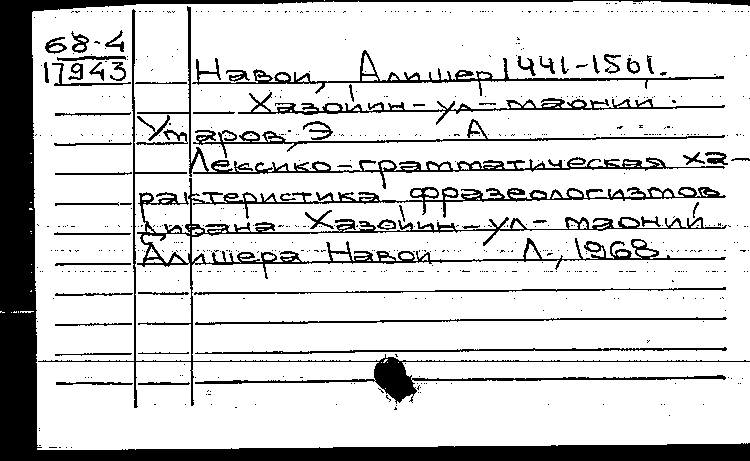 68-4
17943
Навои, Алишер 1441-1501.
Хазойин-ул-маоний.
Умаров, Э А
Лексико-грамматическая ха-
рактеристика фразеологизмов
дивана Хазойин-ул-маоний
Алишера Навои. Л., 1968.